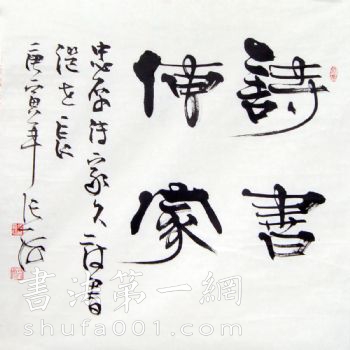 詩書
傳家
忠厚传家久诗書
继世长
庚寅年
書法第一網
shufa001.com